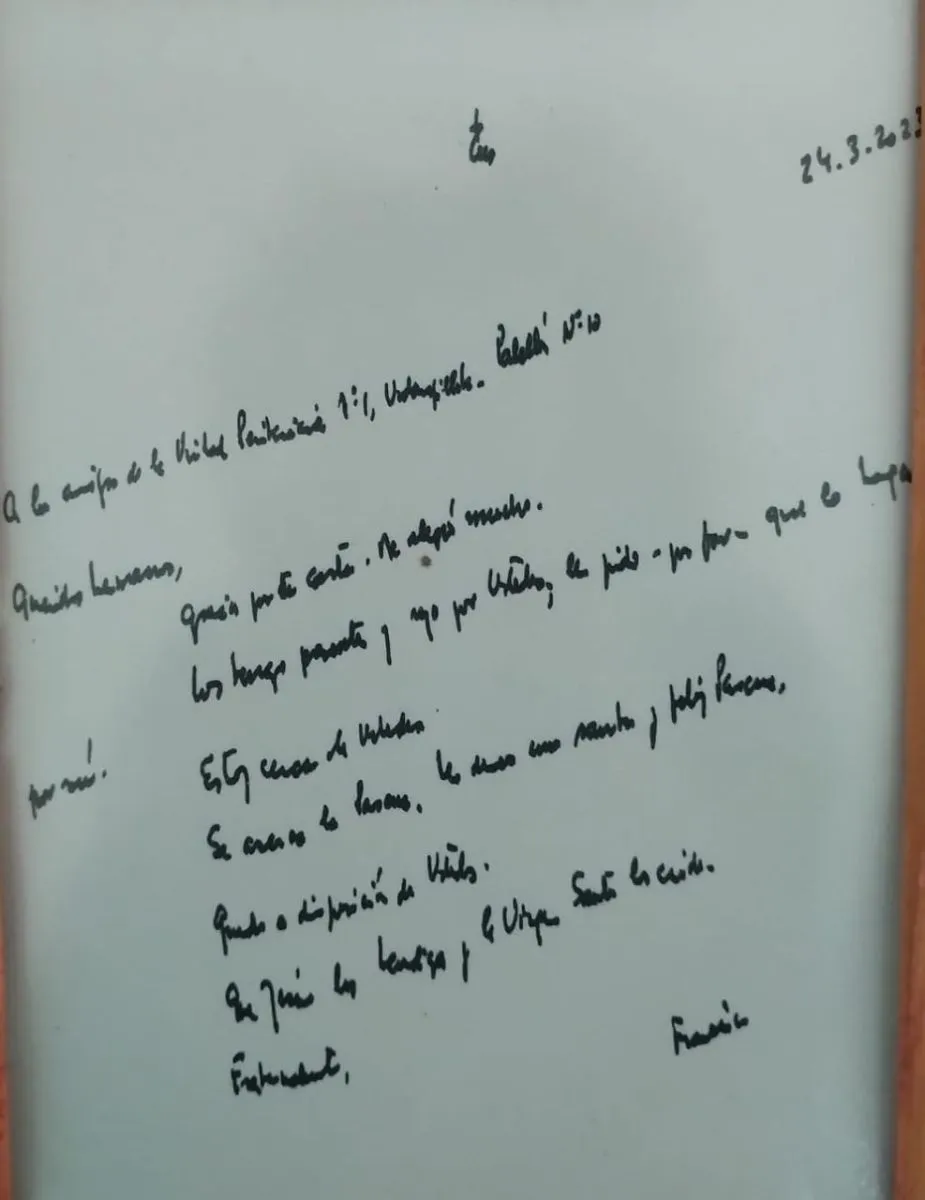 24.3.2023
A los amigos de la Unidad Penitenciaria Nº 1, Pabellón Nº 10
Queridos hermanos,
gracias por la carta. Me alegró mucho.
Los tengo presente y rezo por Ustedes; les pido por favor que lo hagan
por mí.
Estoy cerca de Ustedes
Se acerca la Pascua. Les deseo una santa y feliz Pascua.
Quedo a disposición de Ustedes.
Que Jesús los bendiga y la Virgen Santa los cuide.
Fraternalmente,
Francisco